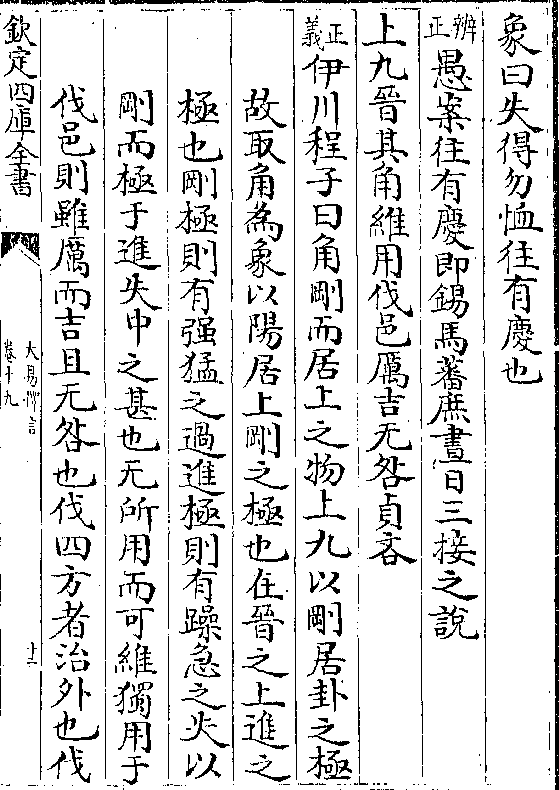 象曰失得勿恤往有慶也
辨正愚案往有慶即錫馬蕃庶晝日三接之說
上九晉其角維用伐邑厲吉无咎貞吝
正義伊川程子曰角剛而居上之物上九以剛居卦之極
故取角為象以陽居上剛之極也在晉之上進之
極也剛極則有强猛之過進極則有躁急之失以
剛而極于進失中之甚也无所用而可維獨用于
伐邑則雖厲而吉且无咎也伐四方者治外也伐
欽定四庫全書
大易擇言
卷十九
十二